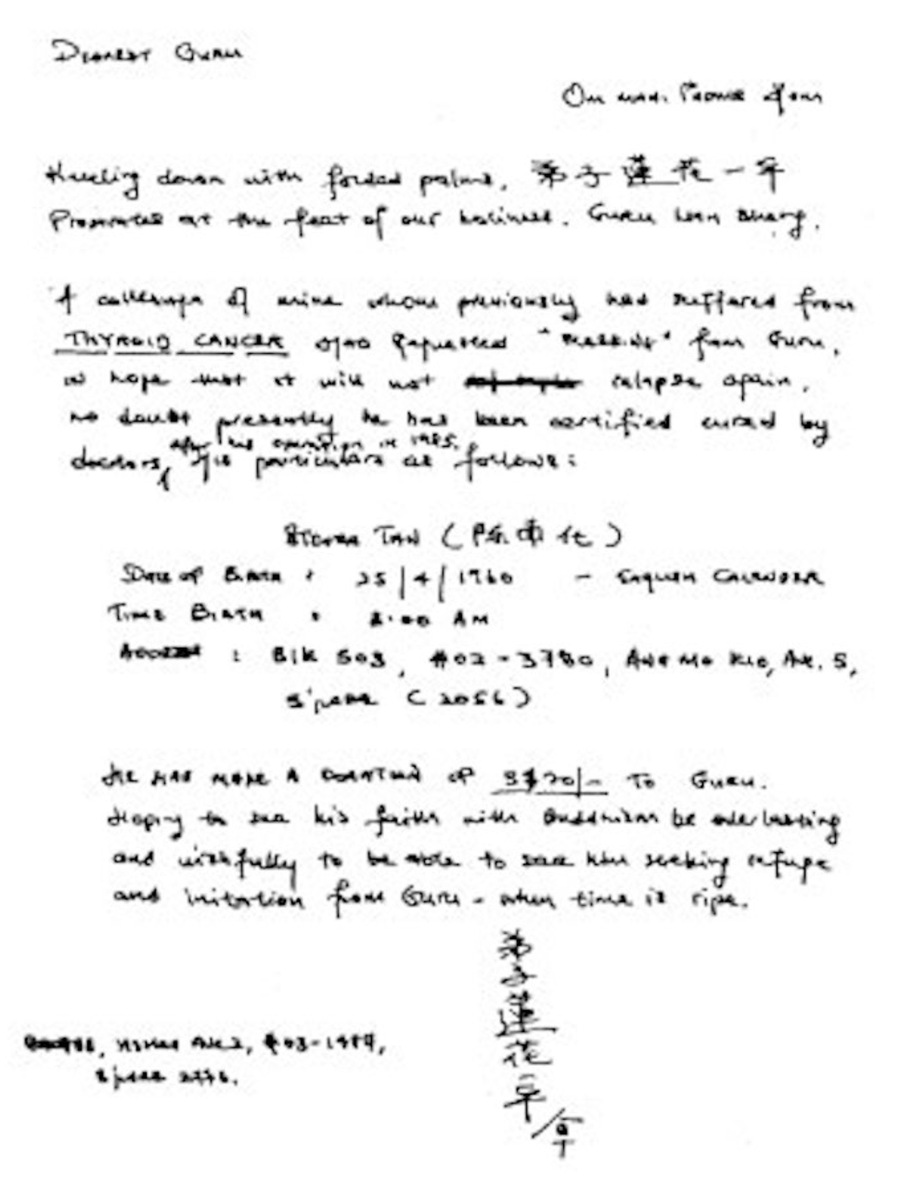 DEAREST GURU
OM MANI PADME HUM
Kneeling down with folded palms, 弟子蓮花一平
Prostrates at the feet of our holiness. Guru Lian Sheng.
A colleague of mine whom previously had suffered from
THYROID CANCER requested "BLESSING" from Guru,
in hope that it will not relapse again,
no doubt presently he has been certified cured by
doctors, after his operation in 1985. His particulars as follows:
TAN (陈
DATE OF BIRTH : 25/4/1960 - ENGLISH CALENDER
TIME BIRTH : 2.00 AM
ADDRESS : BLK 503, #02-3780, ANG MO KIO, AVE. 5,
S'PORE (2056)
HE HAS MADE A DONATION OF S$20/- TO GURU.
Hoping to see his faith with Buddhism be everlasting
and wishfully to be able to see him seeking refuge
and initation from Guru - when time is ripe.
弟子蓮花一平
AVE 2, #03-1487,
S'PORE